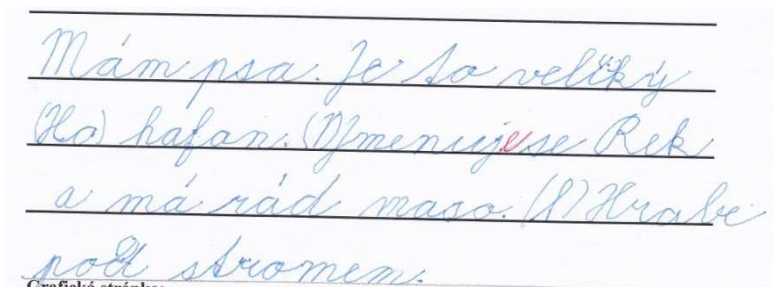 Mám psa. Je to veliký
(Ha) hafan. (J)Jmenuje se Rek
a má rád maso. (H) Hrabe
pod stromem.
Grafická stránka: